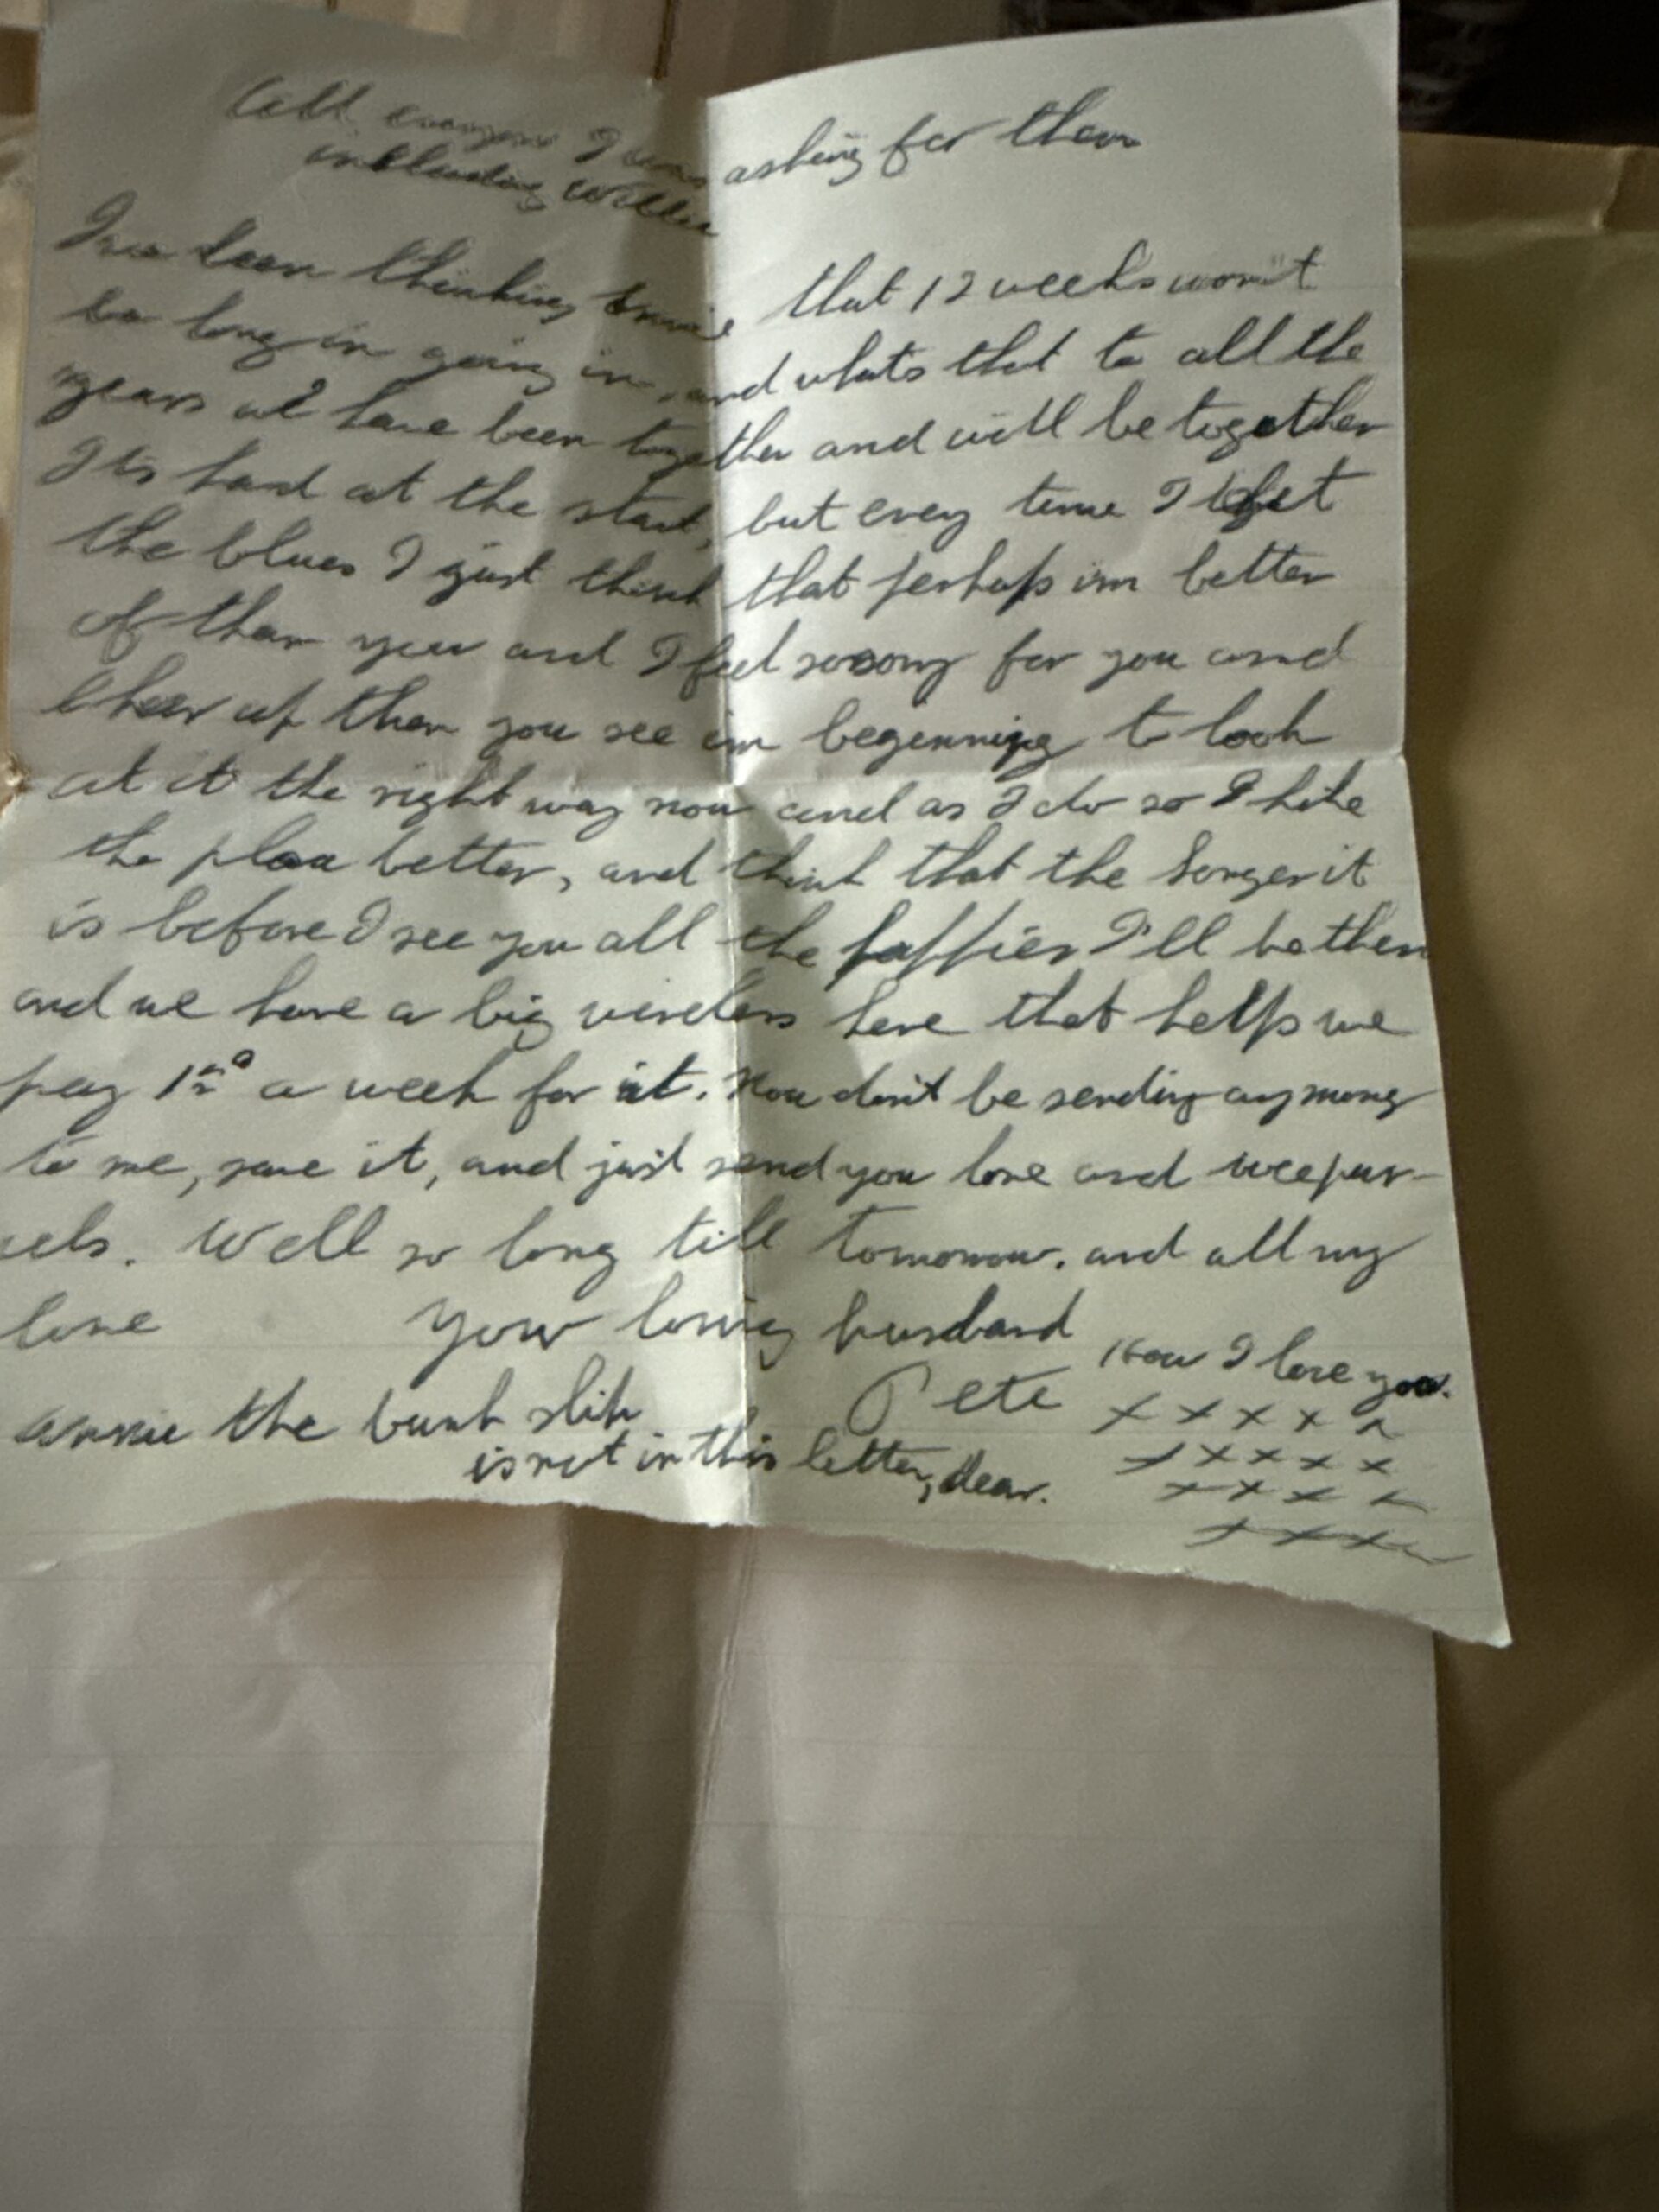 Tell everyone I was asking for them
including Willie
Ive been thinking Annie that 12 weeks won't
be long in going in, and whats that to all the
years we have been together and will be together
Its hard at the start, but every time I get
the blues I just think that perhaps im better
of than you and I feel so sorry for you and
cheer up then you see im beginning to look
at it the right way now and as I do so I like
the place better, and think that the longer it
is before I see you all the happier I'll be then
and we have a big wireless here that helps we
pay 1ᵈ a week for it. Now don't be sending any money
to me, save it, and just send you love and wee par-
cels. Well so long till tomorrow. and all my
love your loving husband
Pete How I love you.
x x x x x
x x x x x
x x x x
x x x x
Annie the bunk slip
is not in this letter, dear.